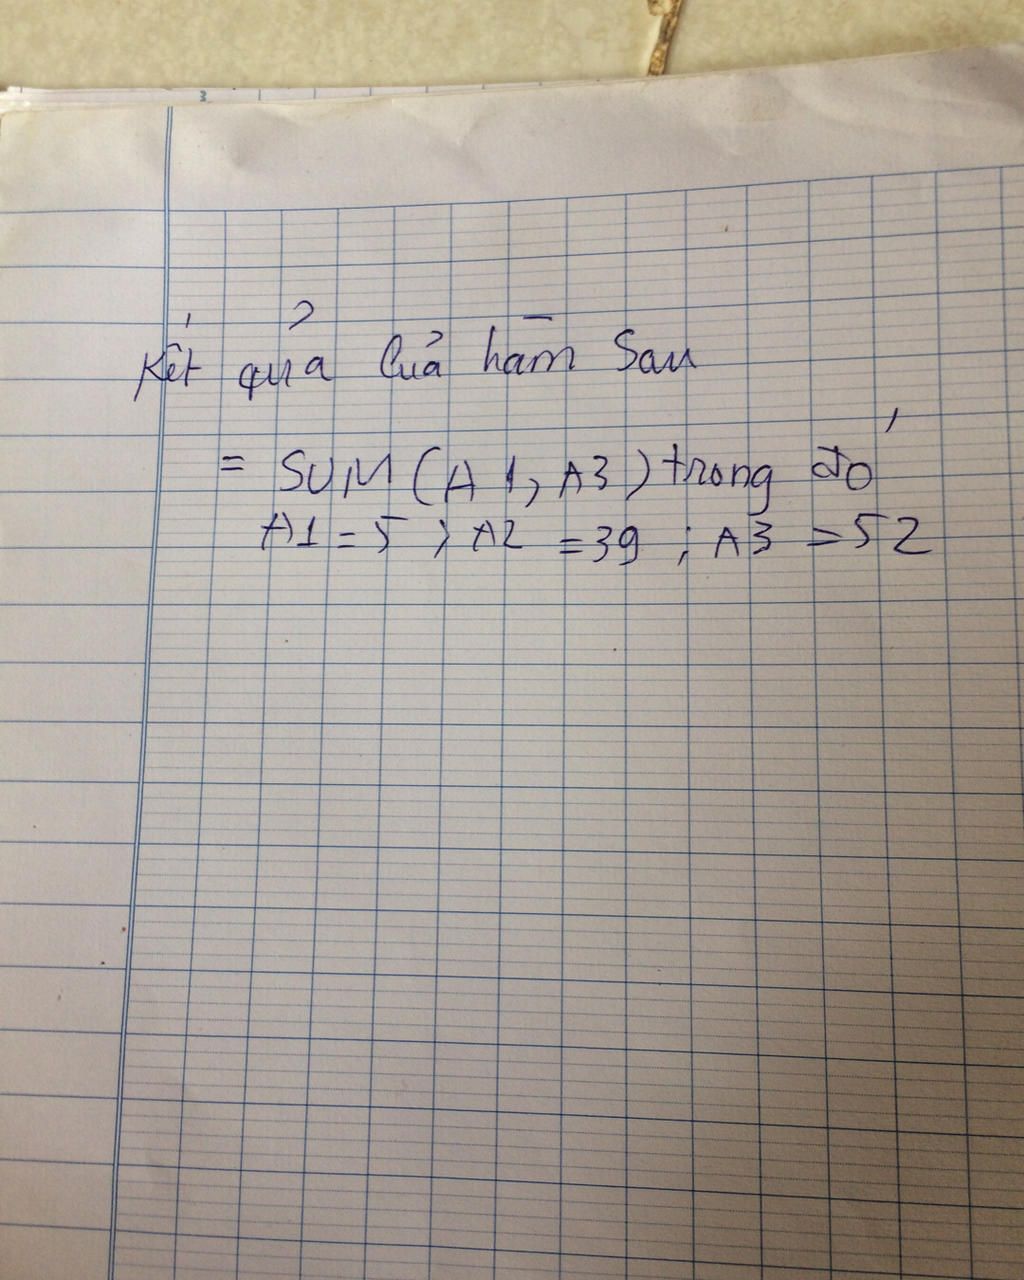 3
Kết quả của hàm sau
= SUM (A1, A3) trong đó
A1 = 5 ; A2 = 39 ; A3 = 52